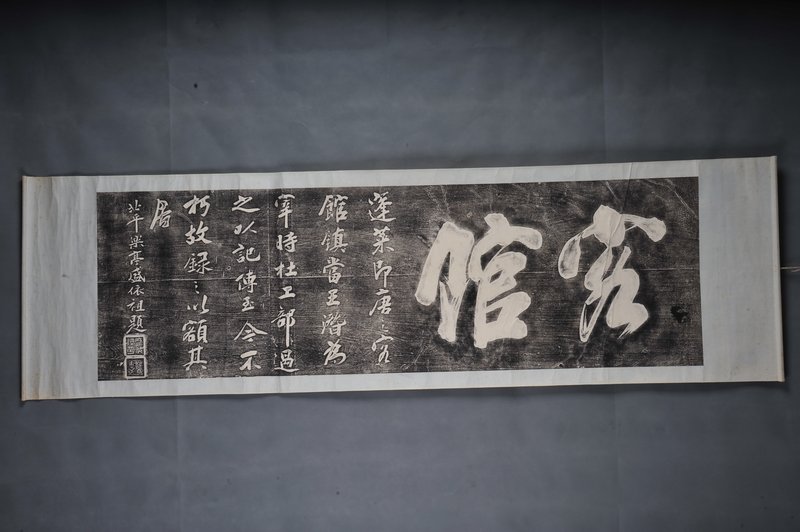 客館
蓬萊即唐之客
館鎮當王潛為
宰時杜工部過
之以記傳至今不
朽故錄之以額其
居
北平梁 盛依祖題